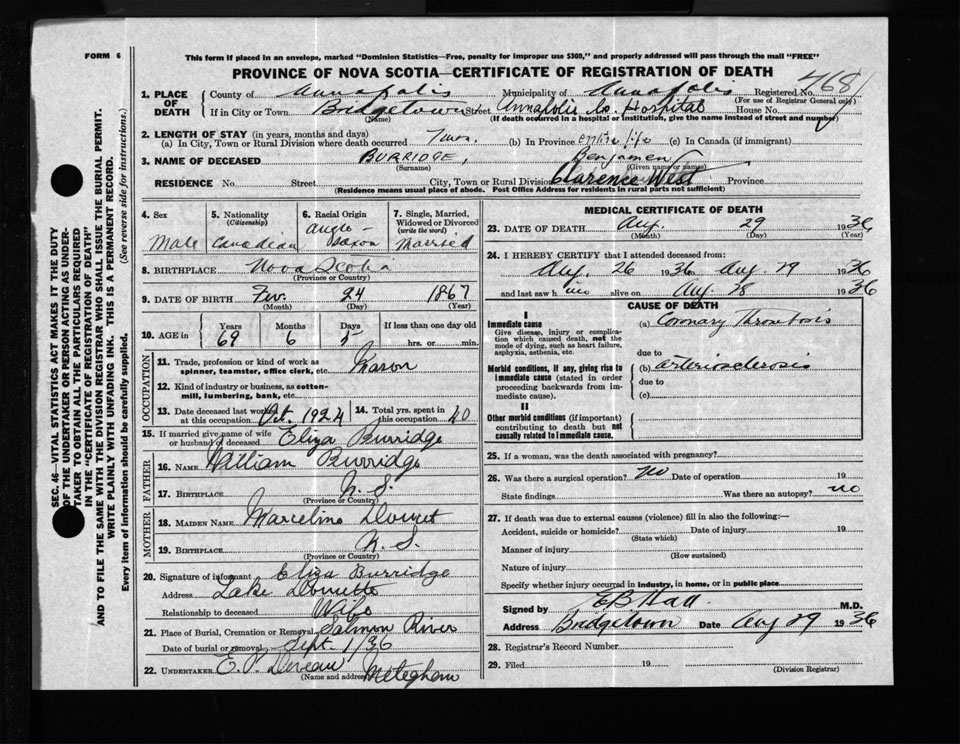 FORM 6
This form if placed in an envelope, marked "Dominion Statistics—Free, penalty for improper use $300," and properly addressed will pass through the mail "FREE"
PROVINCE OF NOVA SCOTIA—CERTIFICATE OF REGISTRATION OF DEATH
1. PLACE OF DEATH County of Annapolis Municipality of Annapolis Registered No. 468
(For use of Registrar General only)
If in City or Town Bridgetown Street Annapolis Co. Hospital House No.
(Name) (If death occurred in a hospital or institution, give the name instead of street and number)
2. LENGTH OF STAY (in years, months and days)
(a) In City, Town or Rural Division where death occurred (b) In Province entire life (c) In Canada (if immigrant)
3. NAME OF DECEASED BURRIDGE, Benjamen
(Surname) (Given name or names)
RESIDENCE No Street City, Town or Rural Division Clarence West Province
(Residence means usual place of abode. Post Office Address for residents in rural parts not sufficient)
4. Sex Male
5. Nationality (Citizenship) Canadian
6. Racial Origin Anglo-Saxon
7. Single, Married, Widowed or Divorced (write the word) Married
8. BIRTHPLACE Nova Scotia
(Province or Country)
9. DATE OF BIRTH 24 1867
(Month) (Day) (Year)
10. AGE in Years 69 Months 6 Days 5 If less than one day old hrs. or min.
OCCUPATION
11. Trade, profession or kind of work as spinner, teamster, office clerk, etc. Mason
12. Kind of industry or business, as cotton-mill, lumbering, bank, etc.
13. Date deceased last worked at this occupation Oct. 1924 14. Total yrs. spent in this occupation 40
15. If married give name of wife or husband of deceased Eliza Burridge
FATHER
16. NAME William Burridge
17. BIRTHPLACE N. S.
(Province or Country)
MOTHER
18. MAIDEN NAME Doucet
19. BIRTHPLACE N. S.
(Province or Country)
20. Signature of informant Eliza Burridge
Address Lake Doucette
Relationship to deceased Wife
21. Place of Burial, Cremation or Removal Salmon River
Date of burial or removal Sept. 1/36
22. UNDERTAKER E. P. Deveau Meteghan
(Name and address)
MEDICAL CERTIFICATE OF DEATH
23. DATE OF DEATH Aug. 29 1936
(Month) (Day) (Year)
24. I HEREBY CERTIFY that I attended deceased from:
Aug. 26 1936 to Aug. 29 1936
and last saw him alive on Aug. 28 1936
CAUSE OF DEATH
I
Immediate cause
Give disease, injury or complication which caused death, not the mode of dying, such as heart failure, asphyxia, asthenia, etc.
(a) Coronary Thrombosis
due to
Morbid conditions, if any, giving rise to immediate cause (stated in order proceeding backwards from immediate cause).
(b) arteriosclerosis
due to
(c)
II
Other morbid conditions (if important) contributing to death but not causally related to immediate cause.
25. If a woman, was the death associated with pregnancy?
26. Was there a surgical operation? no Date of operation 19
State findings Was there an autopsy? no
27. If death was due to external causes (violence) fill in also the following:—
Accident, suicide or homicide? Date of injury 19
(State which)
Manner of injury
(How sustained)
Nature of injury
Specify whether injury occurred in industry, in home, or in public place
Signed by E B Hall M.D.
Address Bridgetown Date Aug 29 1936
28. Registrar's Record Number
29. Filed 19
(Division Registrar)
SEC. 46—VITAL STATISTICS ACT MAKES IT THE DUTY
OF THE UNDERTAKER OR PERSON ACTING AS UNDER-
TAKER TO OBTAIN ALL THE PARTICULARS REQUIRED
IN THE "CERTIFICATE OF REGISTRATION OF DEATH"
AND TO FILE THE SAME WITH THE DIVISION REGISTRAR WHO SHALL ISSUE THE BURIAL PERMIT.
WRITE PLAINLY WITH UNFADING INK. THIS IS A PERMANENT RECORD.
Every item of information should be carefully supplied. (See reverse side for instructions.)